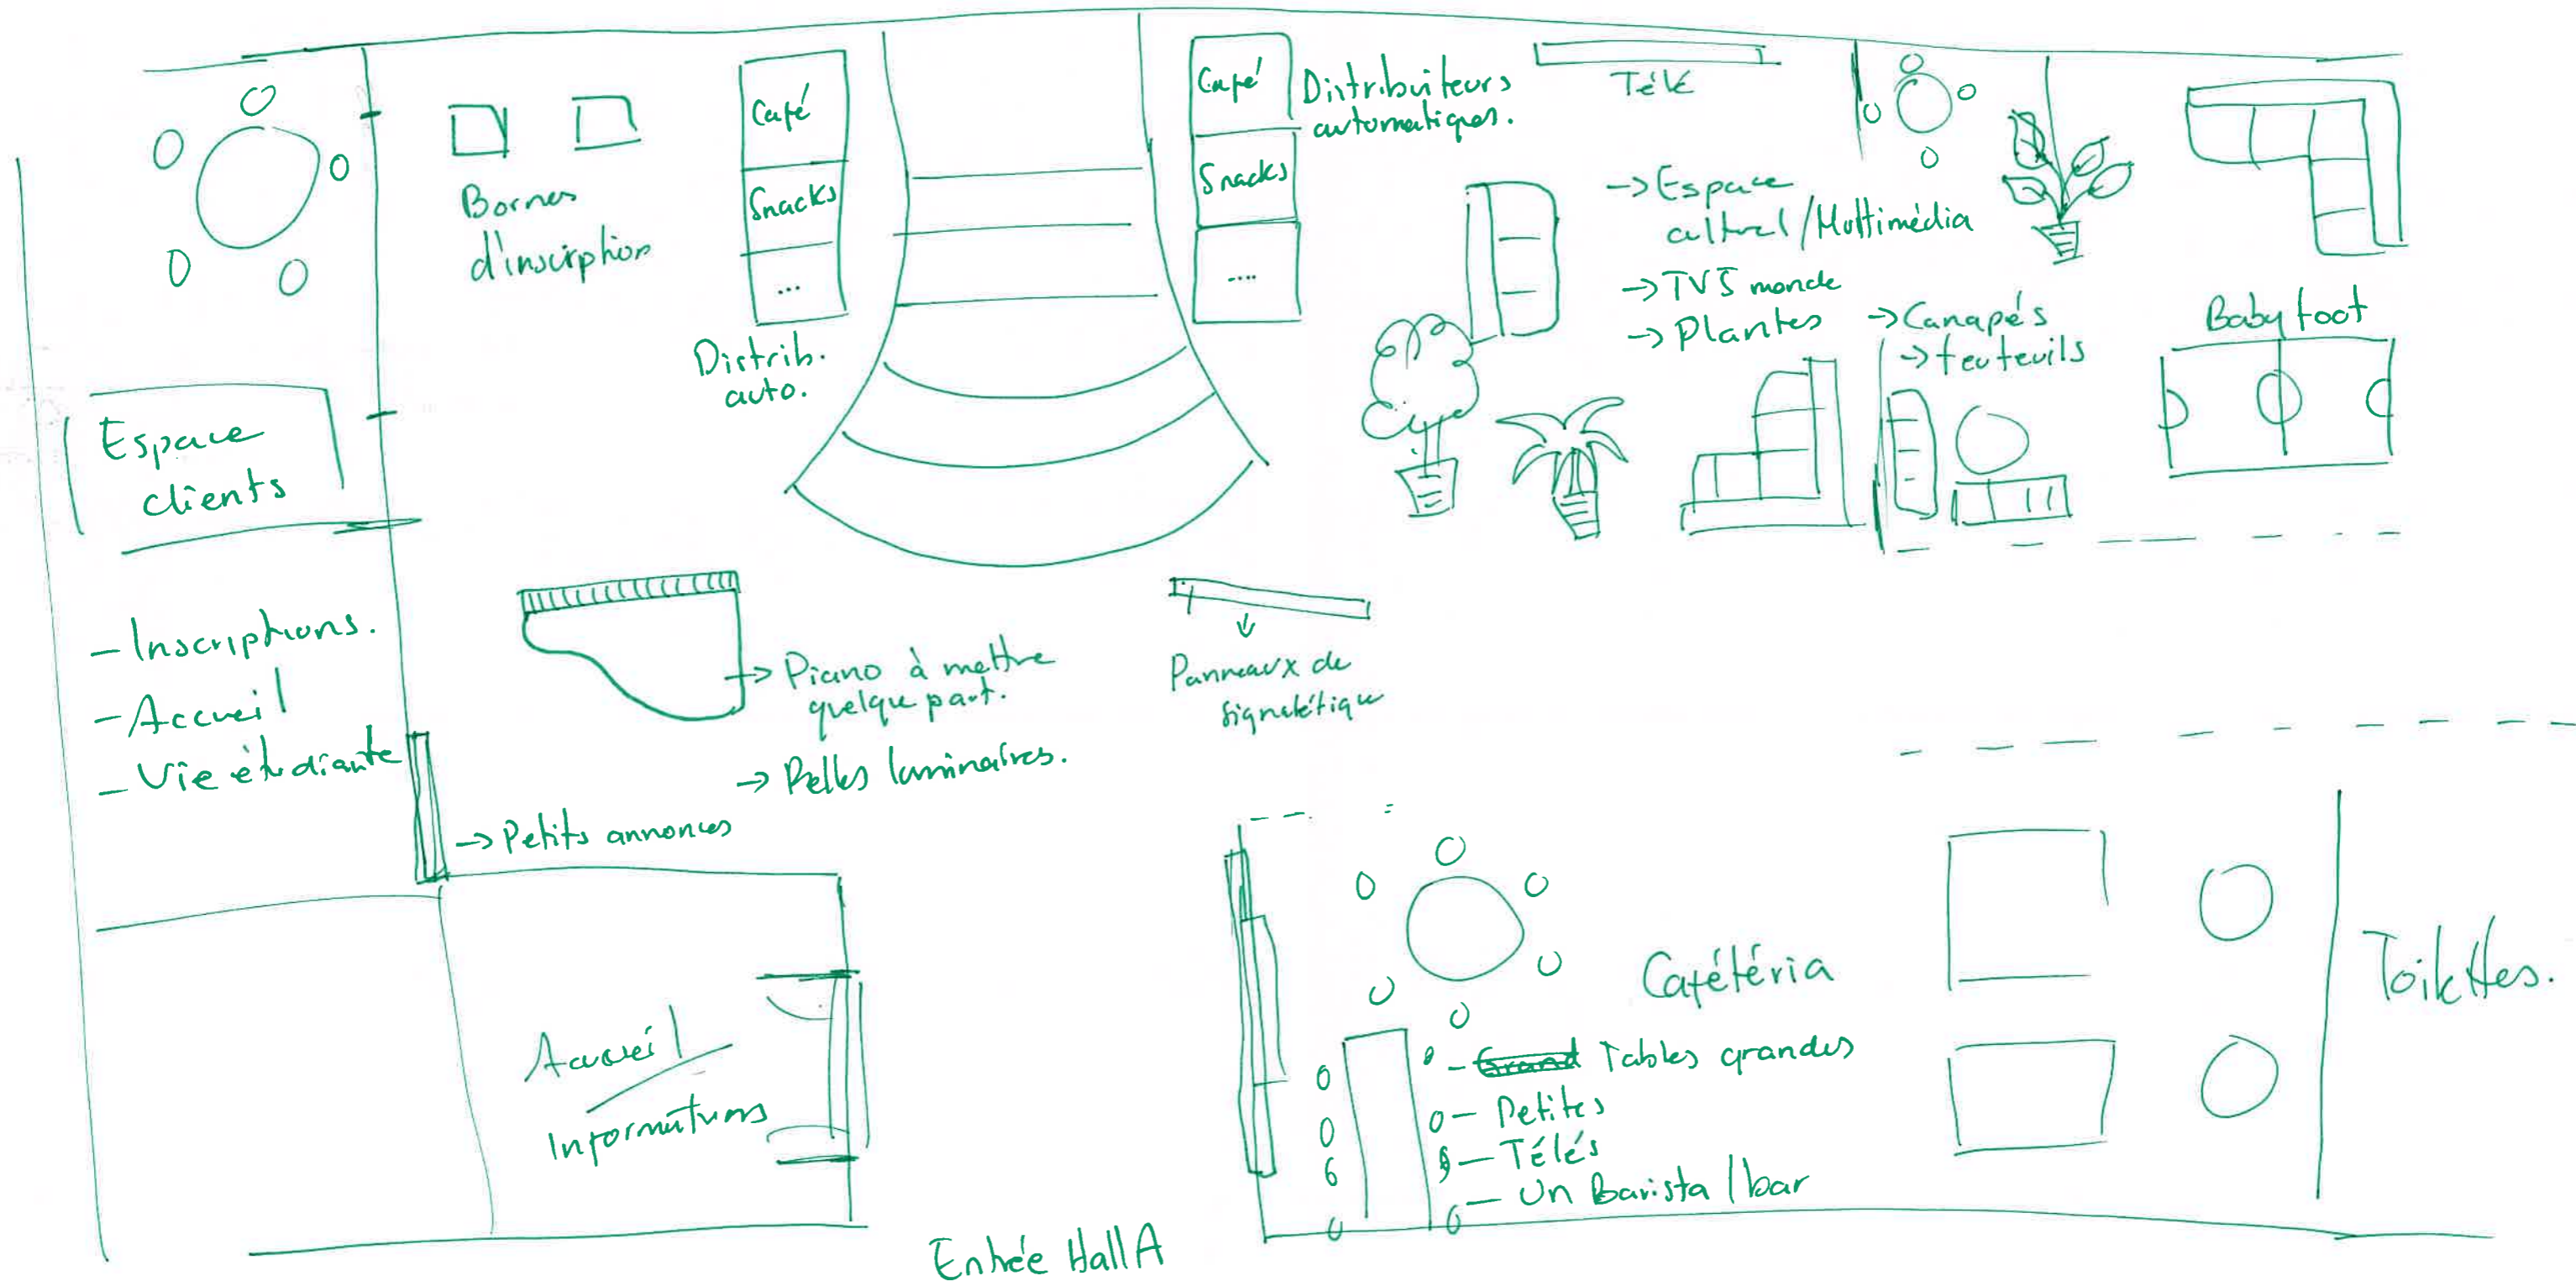 Café
Snacks
...
Distrib.
auto.
Bornes
d'inscription
Café
Snacks
....
Distributeurs
automatiques.
Télé
-> Espace
culturel / Multimédia
-> TV5 monde
-> Plantes
-> Canapés
-> fauteuils
Baby foot
Espace
clients
- Inscriptions.
- Accueil
- Vie étudiante
-> Petits annonces
-> Piano à mettre
quelque part.
-> Belles luminaires.
Panneaux de
signalétique
Accueil
Informations
Entrée Hall A
Cafétéria
- Grand Tables grandes
- Petites
- Télés
- Un Barista / bar
Toilettes.